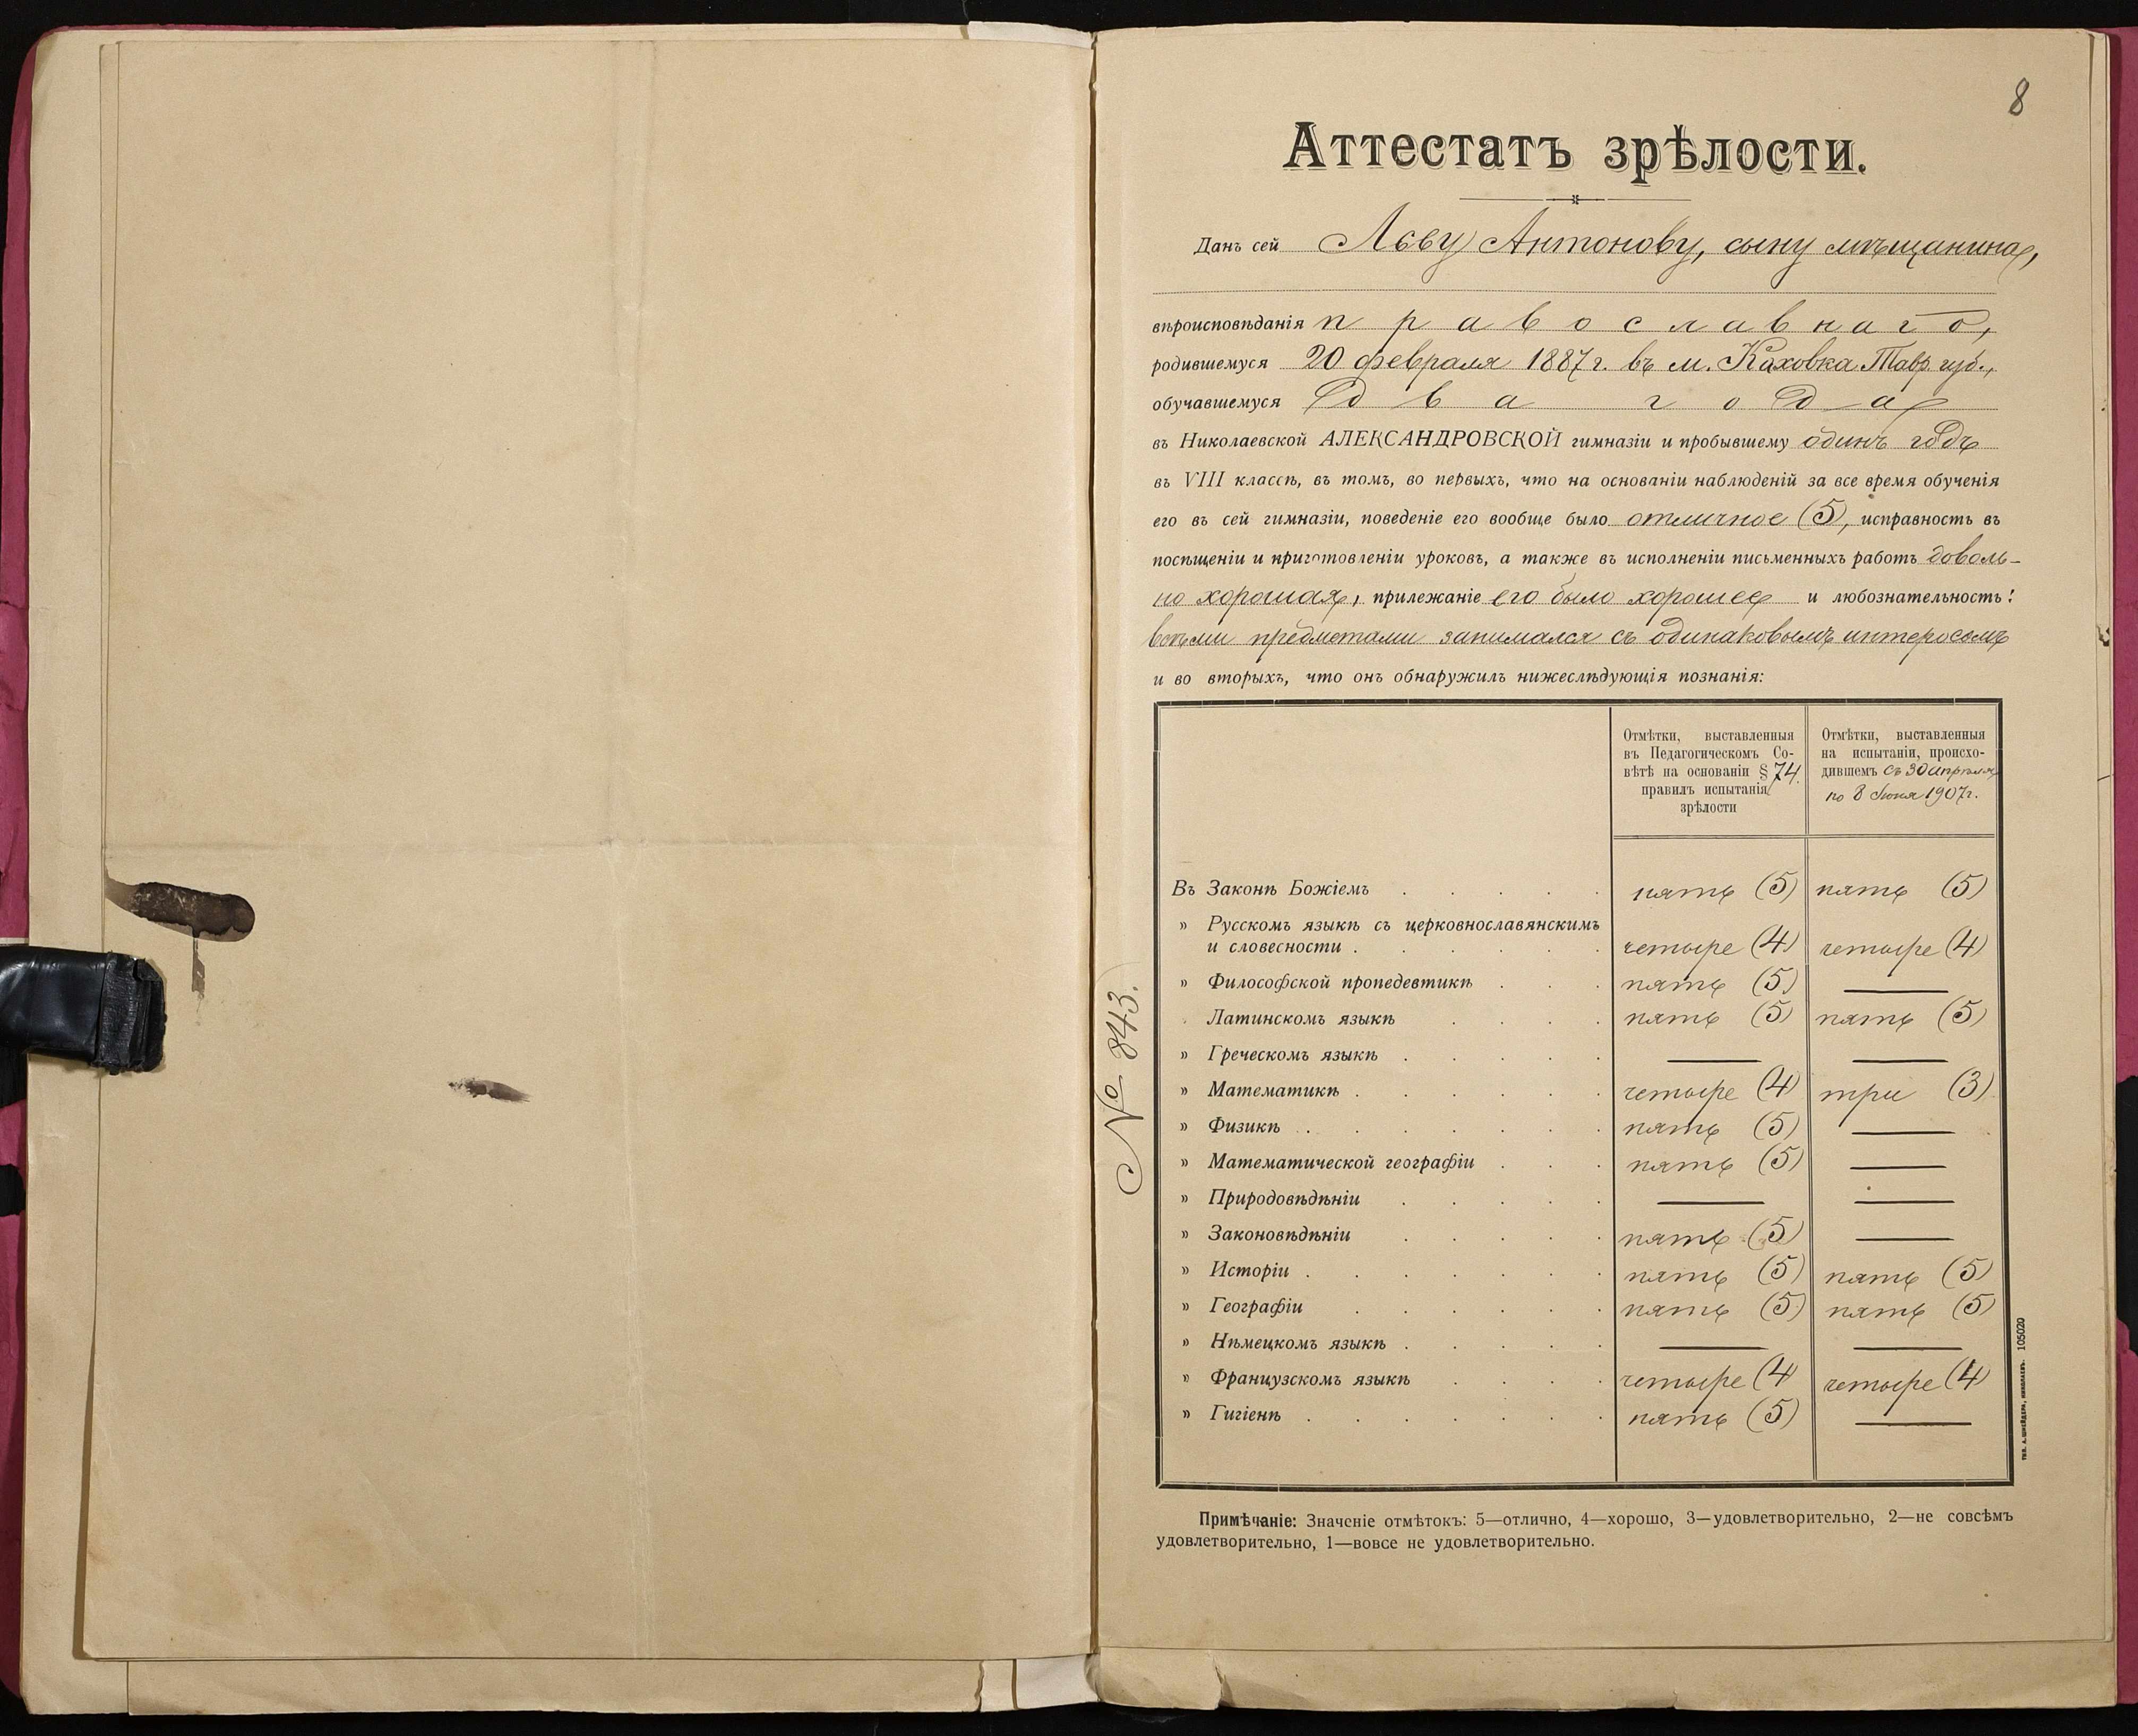 8
Аттестатъ зрѣлости.
Данъ сей Льву Антонову, сыну мѣщанина,
вѣроисповѣданія православнаго,
родившемуся 20 февраля 1887 г. въ м. Каховка Тавр. губ.,
обучавшемуся два года
въ Николаевской АЛЕКСАНДРОВСКОЙ гимназіи и пробывшему одинъ годъ
въ VIII классѣ, въ томъ, во первыхъ, что на основаніи наблюденій за все время обученія
его въ сей гимназіи, поведеніе его вообще было отличное (5), исправность въ
посѣщеніи и приготовленіи уроковъ, а также въ исполненіи письменныхъ работъ доволь-
но хорошая, прилежаніе его было хорошее и любознательность:
всѣми предметами занимался съ одинаковымъ интересомъ
и во вторыхъ, что онъ обнаружилъ нижеслѣдующія познанія:
Отмѣтки, выставленныя
въ Педагогическомъ Со-
вѣтѣ на основаніи § 74.
правилъ испытанія
зрѣлости
Отмѣтки, выставленныя
на испытаніи, происхо-
дившемъ съ 30 апрѣля
по 8 Июня 1907 г.
Въ Законѣ Божіемъ . . . . . пять (5) пять (5)
» Русскомъ языкѣ съ церковнославянскимъ
и словесности . . . . . . четыре (4) четыре (4)
» Философской пропедевтикѣ . . . пять (5) —
Латинскомъ языкѣ . . . . пять (5) пять (5)
» Греческомъ языкѣ . . . . . — —
» Математикѣ . . . . . . четыре (4) три (3)
» Физикѣ . . . . . . . пять (5) —
» Математической географіи . . . пять (5) —
» Природовѣдѣніи . . . . . — —
» Законовѣдѣніи . . . . . пять (5) —
» Исторіи . . . . . . . пять (5) пять (5)
» Географіи . . . . . . пять (5) пять (5)
» Нѣмецкомъ языкѣ . . . . . — —
» Французскомъ языкѣ . . . . четыре (4) четыре (4)
» Гигіенѣ . . . . . . . пять (5) —
№ 843.
Примѣчаніе: Значеніе отмѣтокъ: 5—отлично, 4—хорошо, 3—удовлетворительно, 2—не совсѣмъ
удовлетворительно, 1—вовсе не удовлетворительно.
Тип. А. Шнейдера, Николаевъ. 105020